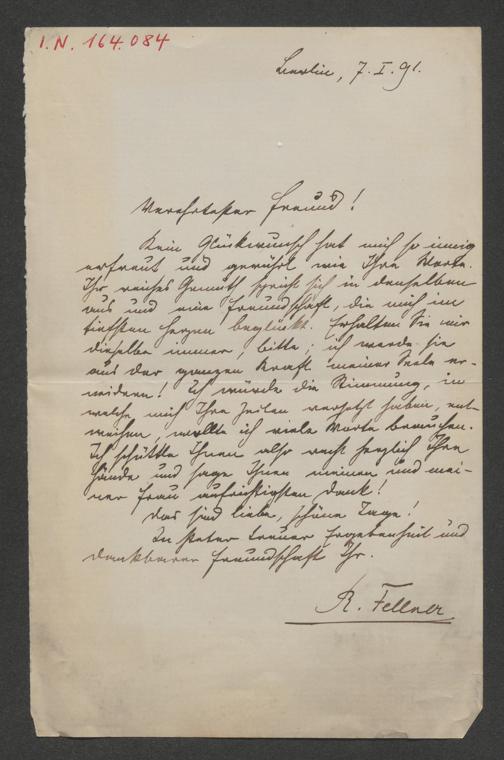 I.N. 164.084
Berlin, 7. I. 91.
Verehrtester Freund!
Kein Glückwunsch hat mich so innig
erfreut und gerührt wie Ihre Worte.
Ihr reiches Gemüth spricht sich in denselben
aus und eine Freundschaft, die mich im
tiefsten Herzen beglückt. Erhalten Sie mir
dieselbe immer, bitte; ich werde sie
aus der ganzen Kraft meiner Seele er-
widern! Ich würde die Stimmung, in
welche mich Ihre Zeilen versetzt haben, ent-
weihen, wollte ich viele Worte brauchen.
Ich schüttle Ihnen also recht herzlich Ihre
Hände und sage Ihnen meinen und mei-
ner Frau aufrichtigsten Dank!
Das sind liebe, schöne Tage!
In steter treuer Ergebenheit und
dankbarer Freundschaft Ihr.
R. Fellner